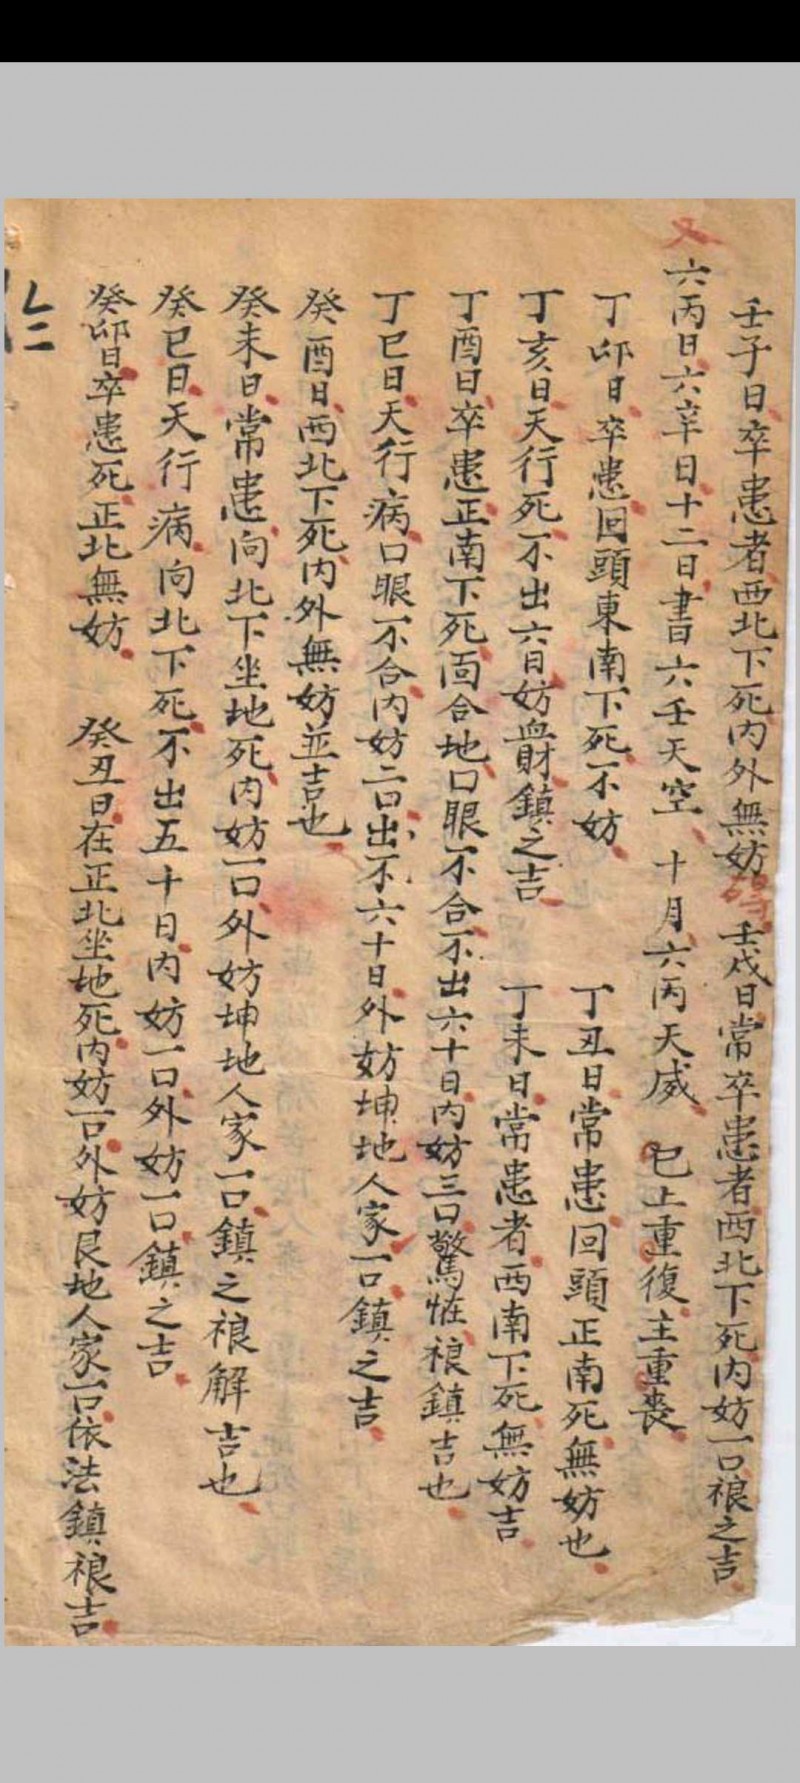 壬子日卒患者西北下死内外無妨 壬戌日常卒患者西北下死内妨一口禳之吉
又
六丙日六辛日十二日書六壬天空 十月六丙天威 已上重復主重喪
丁卯日卒患回頭東南下死不妨 丁丑日常患回頭正南死無妨也
丁亥日天行死不出六日妨血財鎮之吉 丁未日常患者西南下死無妨吉
丁酉日卒患正南下死面合地口眼不合不出六十日内妨三口驚怪禳鎮吉也
丁巳日天行病口眼不合内妨二口出不六十日外妨坤地人家一口鎮之吉
癸酉日西北下死内外無妨並吉也
癸未日常患向北下坐地死内妨一口外妨坤地人家一口鎮之禳解吉也
癸巳日天行病向北下死不出五十日内妨一口外妨一口鎮之吉
癸卯日卒患死正北無妨 癸丑日在正北坐地死内妨一口外妨艮地人家一口依法鎮禳吉